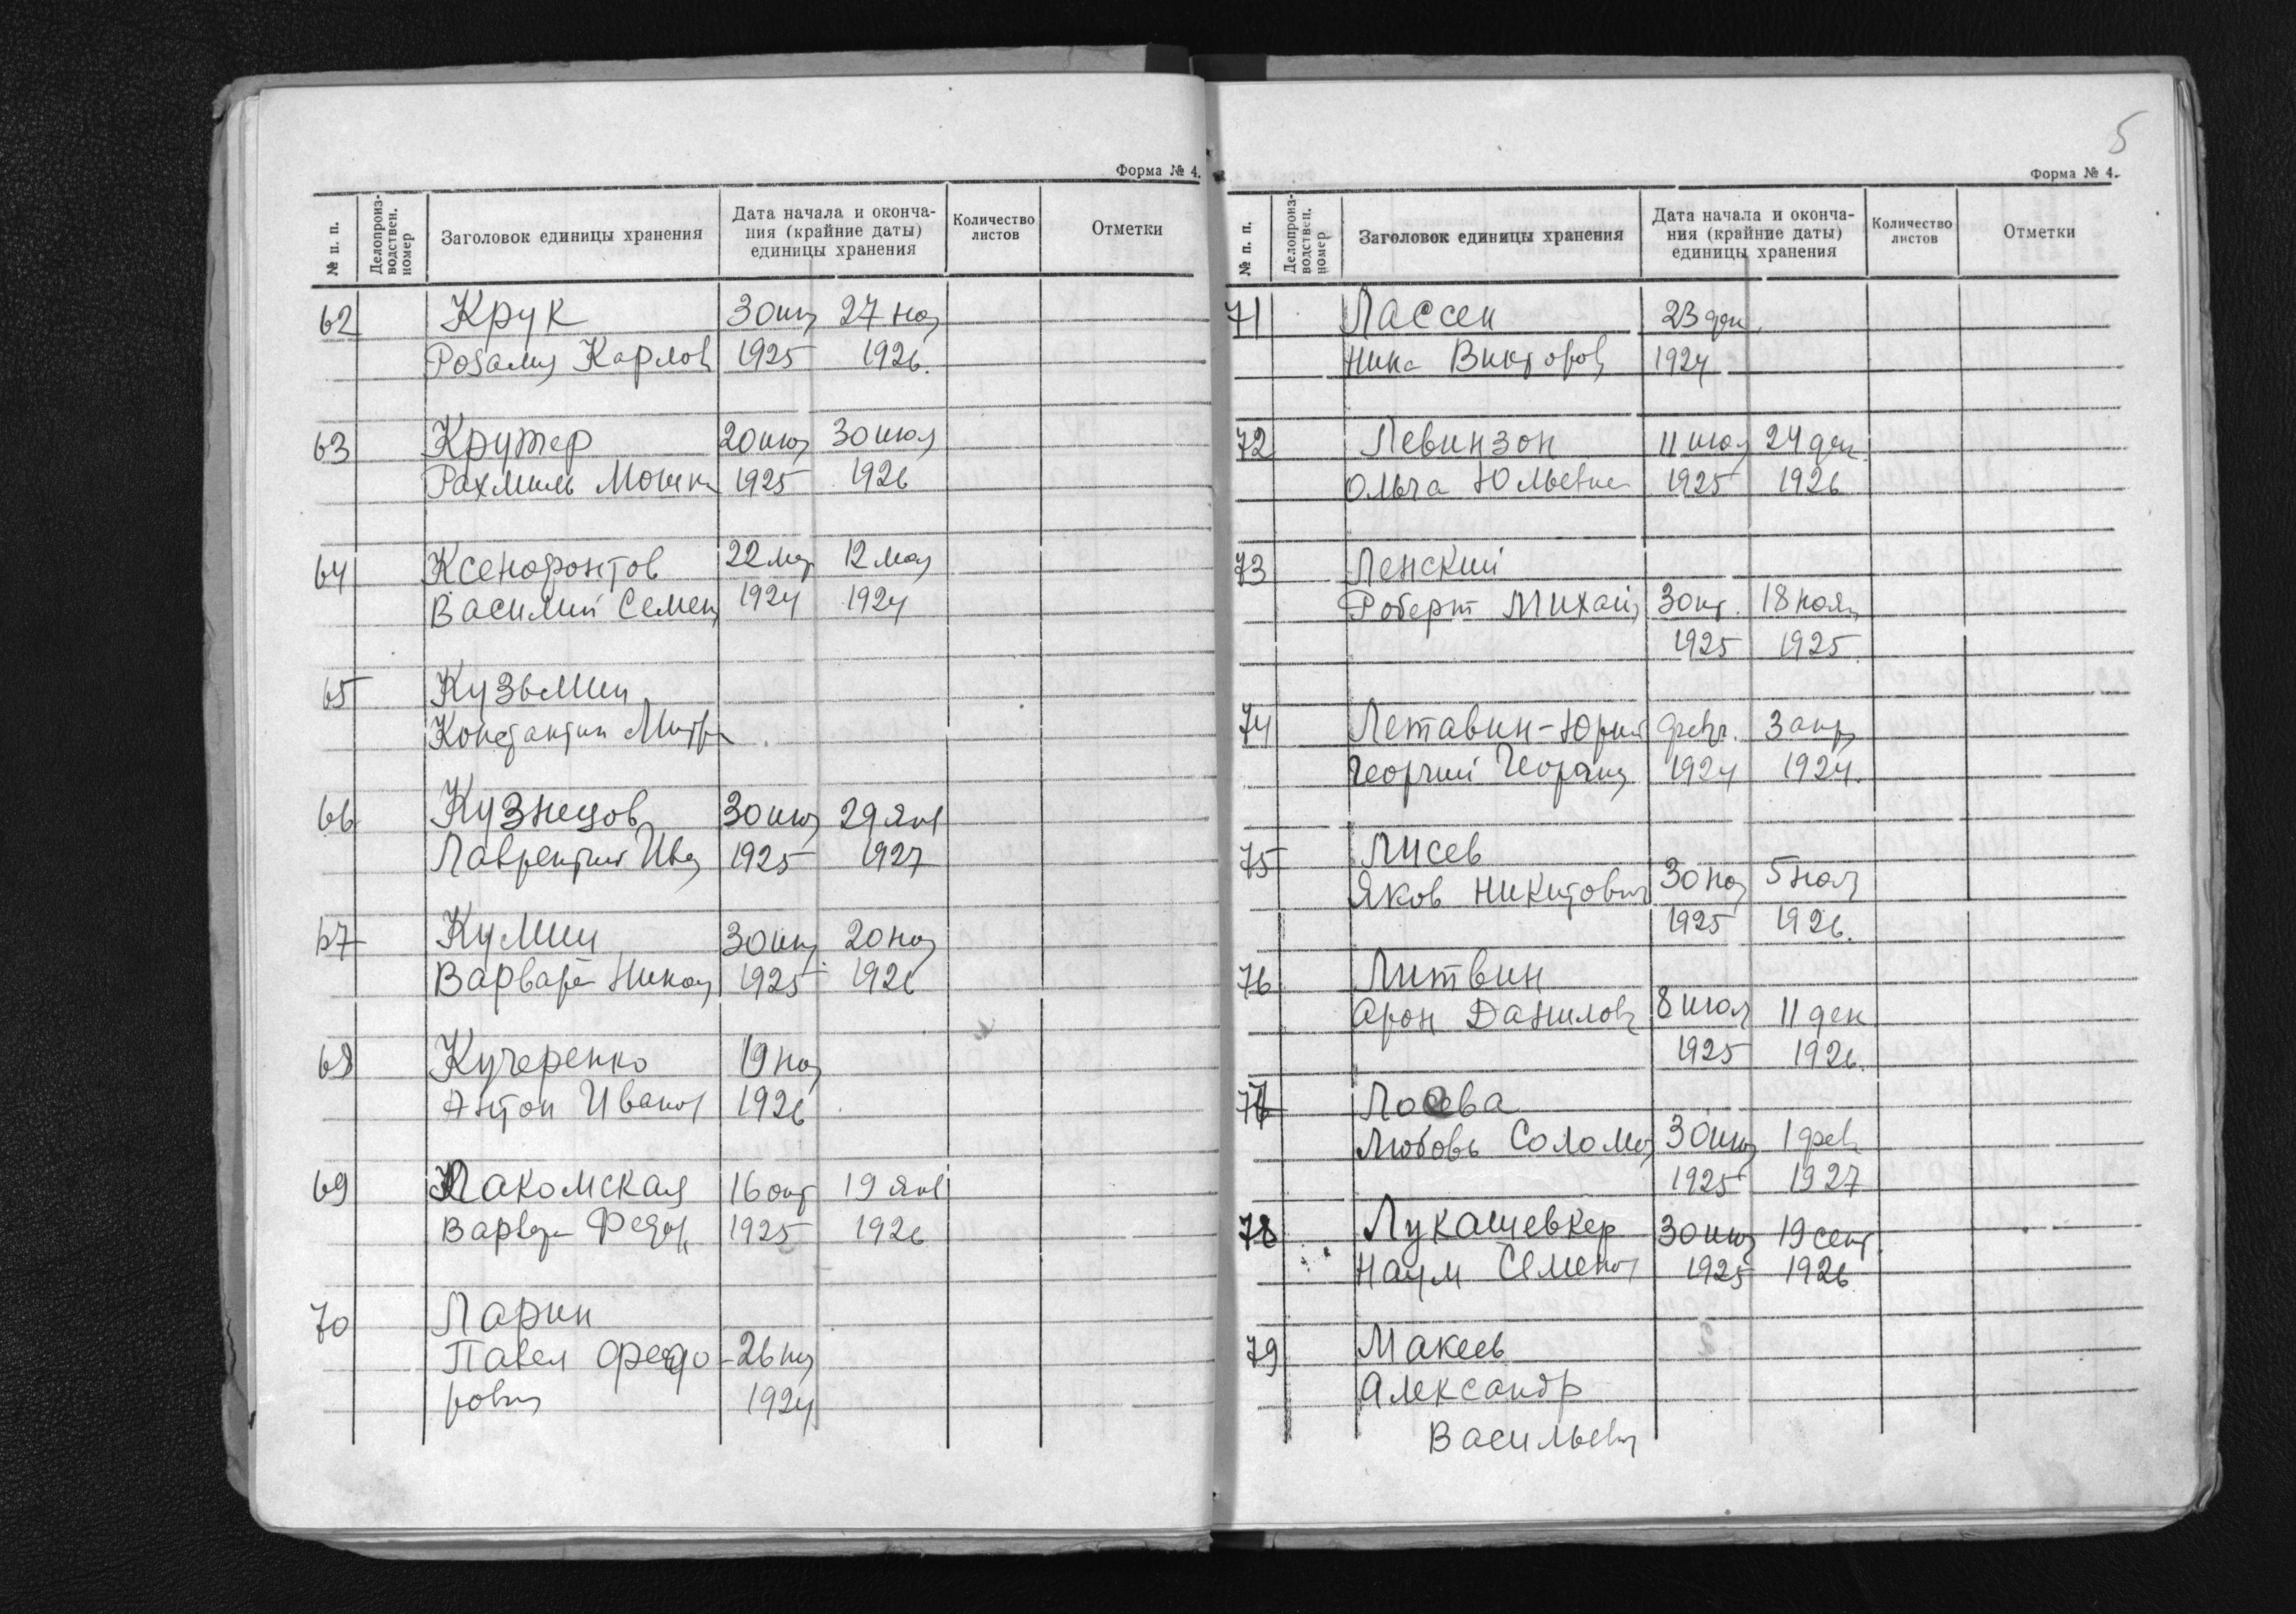 Форма № 4.
№ п. п.
Делопроиз-
водствен.
номер
Заголовок единицы хранения
Дата начала и оконча-
ния (крайние даты)
единицы хранения
Количество
листов
Отметки
62 Крук 30 27
Розалия Карлов 1925 1926.
63 Крутер 20 30 июл
Рахмиль Мошк 1925 1926
64 Ксенофонтов 22 мар 12 мая
Василий Семен 1924 1924
65 Кузьмин
Константин Митр
66 Кузнецов 30 29 янв
Лаврентий Ива 1925 1927
67 Кулиш 30 20
Варвара Никол 1925 1926
68 Кучеренко 19
Антон Иванов 1926
69 Лакомская 16 окт 19 янв
Варвара Федор 1925 1926
70 Ларин
Павел Федо- 26
рович 1924
5
Форма № 4.
№ п. п.
Делопроиз-
водствен.
номер
Заголовок единицы хранения
Дата начала и оконча-
ния (крайние даты)
единицы хранения
Количество
листов
Отметки
71 Лассен 23 дек.
Нина Викторов 1924
72 Левинзон 11 июл 24 дек.
Ольга 1925 1926
73 Ленский
Роберт Михайл 30 кт. 18 нояб
1925 1925.
74 Летавин-Юрий февр. 3 апр
Георгий Георгиев 1924 1924.
75 Лисев
Яков Никитович 30 ноя 5 ноя
1925 1926.
76 Литвин
Арон Данилов 8 июл 11 дек
1925 1926.
77 Лосева
Любовь Соломон 30 1 фев
1925 1927
78 Лукашевкер 30 19 сент.
Наум Семенов 1925 1926
79 Макеев
Александр
Васильевич